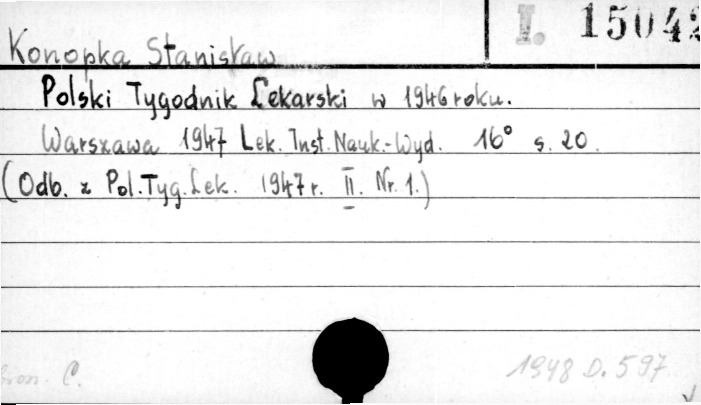 I. 15042
Konopka Stanisław
Polski Tygodnik Lekarski w 1946 roku.
Warszawa 1947 Lek. Inst. Nauk.-Wyd. 16° s. 20.
(Odb. z Pol. Tyg. Lek. 1947 r. II. Nr. 1.)
C. 1948 D. 597